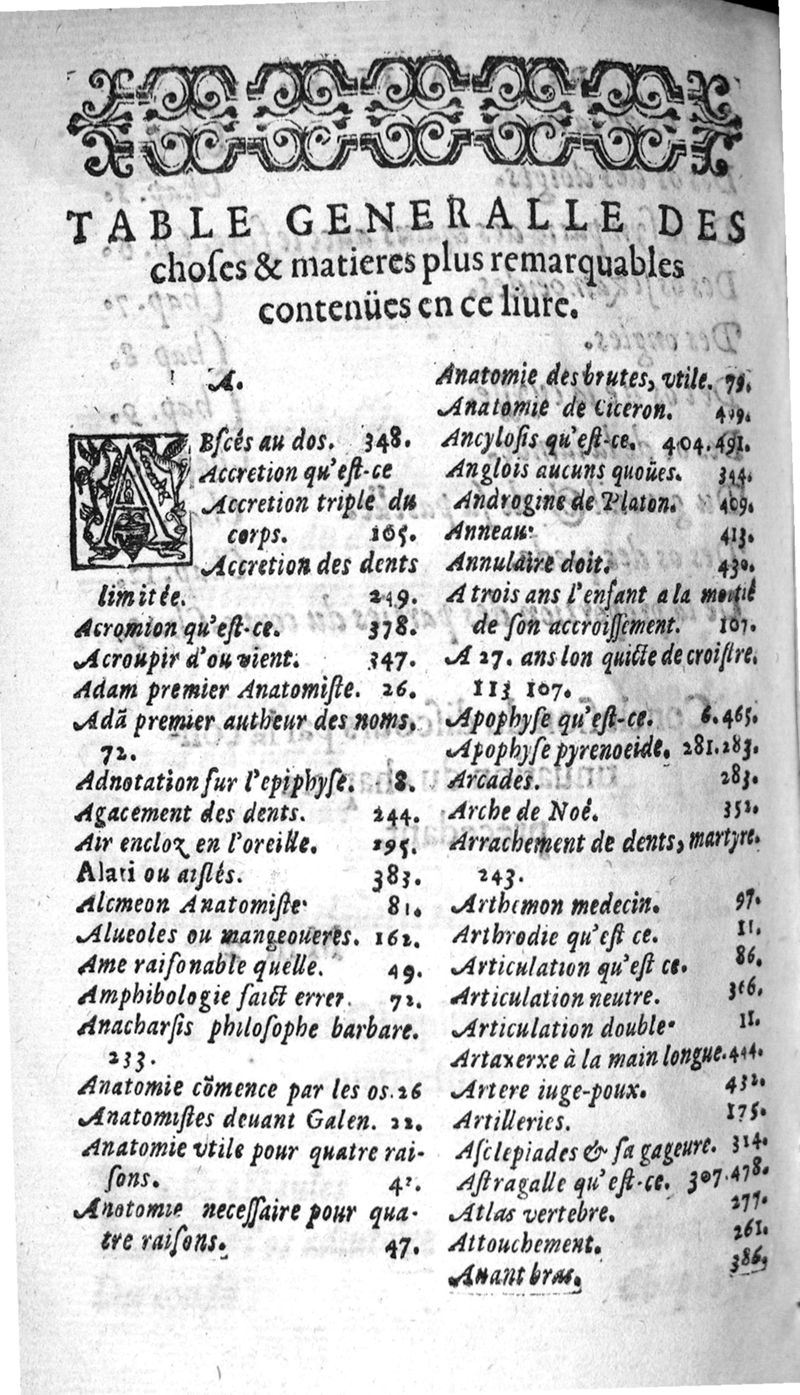 TABLE GENERALLE DES
choſes & matieres plus remarquables
contenües en ce liure.
A.
ABſcés au dos. 348.
Accretion qu'eſt-ce
Accretion triple du
corps. 105.
Accretion des dents
limitée. 249.
Acromion qu'eſt-ce. 378.
Acroupir d'ou vient. 347.
Adam premier Anatomiſte. 26.
Adã premier autheur des noms.
72.
Adnotation ſur l'epiphyſe. 8.
Agacement des dents. 244.
Air encloz en l'oreille. 195.
Alati ou aiſlés. 383.
Alcmeon Anatomiſte. 81.
Alueoles ou mangeoueres. 162.
Ame raiſonable quelle. 49.
Amphibologie faict errer. 72.
Anacharſis philoſophe barbare.
233.
Anatomie cõmence par les os. 26
Anatomiſtes deuant Galen. 22.
Anatomie vtile pour quatre rai-
ſons. 42.
Anatomie neceſſaire pour qua-
tre raiſons. 47.
Anatomie des brutes, vtile. 79.
Anatomie de Ciceron.
Ancyloſis qu'eſt-ce. 404.491.
Anglois aucuns quoües. 344.
Androgine de Platon. 409.
Anneau. 413.
Annulaire doit. 430.
A trois ans l'enfant a la moitié
de ſon accroiſſement. 107.
A 27. ans lon quicte de croiſtre.
113 107.
Apophyſe qu'eſt-ce. 6.465.
Apophyſe pyrenoeide. 281.283.
Arcades. 283.
Arche de Noé. 352.
Arrachement de dents, martyre.
243.
Arthemon medecin. 97.
Arthrodie qu'eſt ce. 11.
Articulation qu'eſt ce. 86.
Articulation neutre. 366.
Articulation double. 11.
Artaxerxe à la main longue. 444.
Artere iuge-poux. 432.
Artilleries. 175.
Aſclepiades & ſa gageure. 314.
Aſtragalle qu'eſt-ce. 307.478.
Atlas vertebre. 277.
Attouchement. 261.
Auant bras. 386.